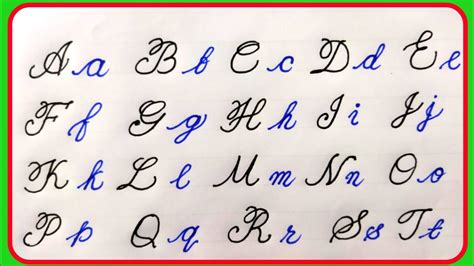 A a B b C c D d E e
F f G g H h I i J j
K k L l M m N n O o
P p Q q R r S s T t